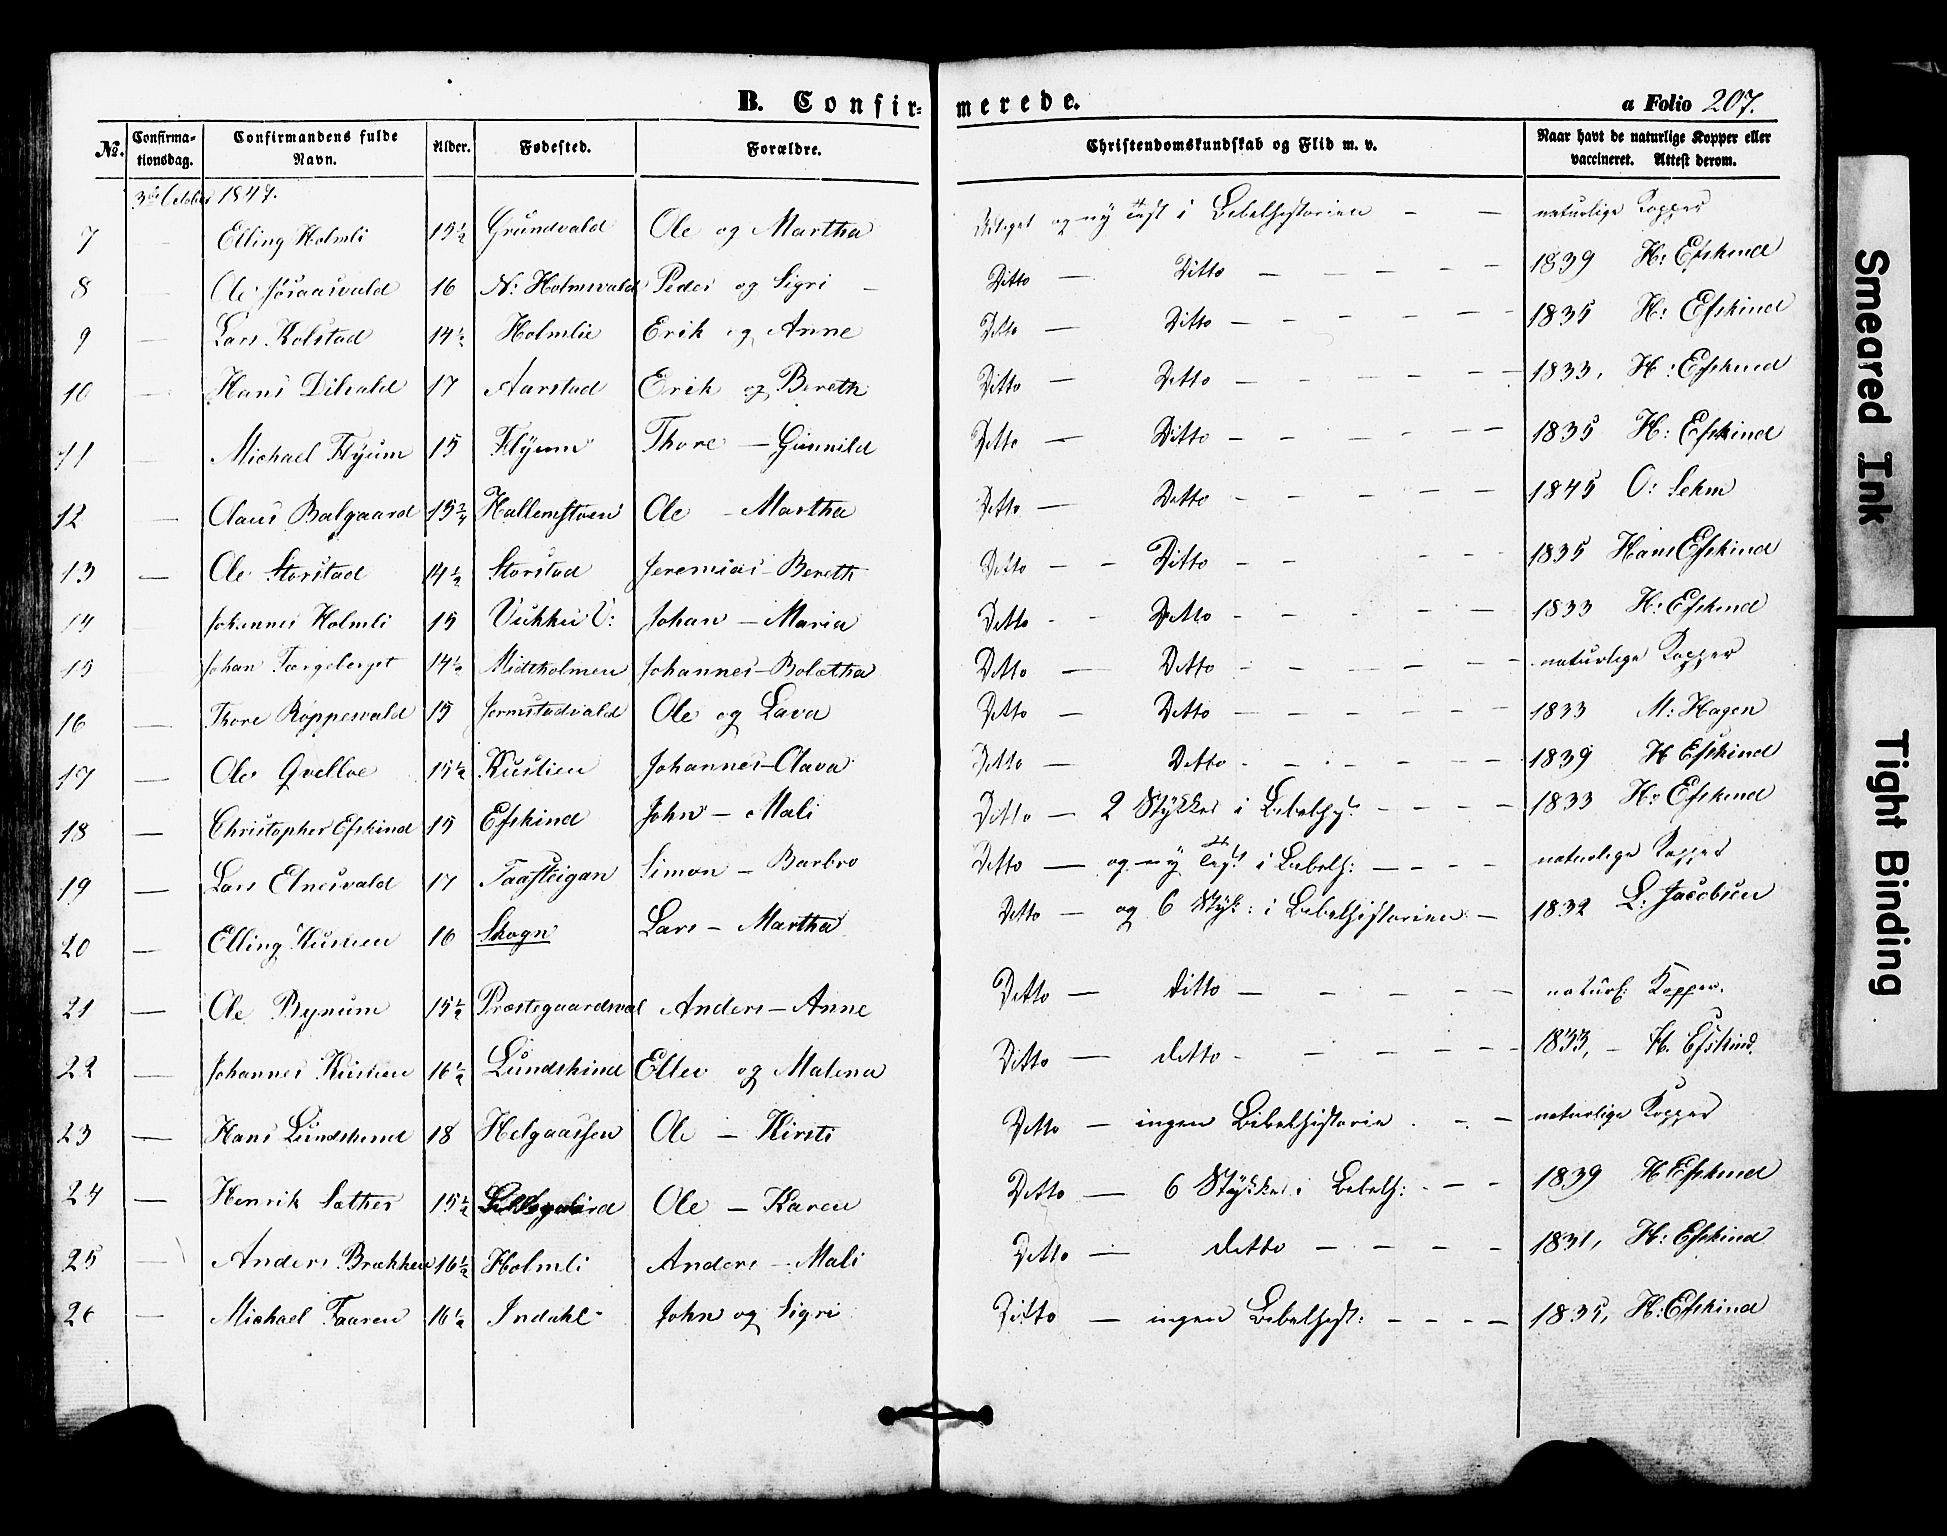 B. Confir= merede.
a Folio 207.
No. Confirma-tionsdag. Confirmandens fulde Navn. Alder. Fødested. Forældre. Christendomskundskab og Flid m. v. Naar havt de naturlige Kopper eller vaccineret. Attest derom.
3die October 1847.
7 — Elling Holmli 15½ Grundvald Ole og Martha og ny Test i Bibelhistorien — — naturlige Kopper
8 Ole 16 N: Holmsvald Peder og Sigri — Ditto — Ditto — — — — — 1839 H: Efskind
9 — Lars Kolstad 14½ Holmlie Erik og Anne Ditto — Ditto — — — — — 1835 H: Efskind
10 — Hans Dilvald 17 Aarstad Erik og Bereth Ditto — Ditto — — — — — 1833, H: Efskind
11 — Michael Flyum 15 Flyum Thore — Gunnild Ditto — Ditto — — — — — 1835 H: Efskind
12 — Claus Balgaard 15¾ Hallemstuen Ole — Martha Ditto — Ditto — — — — — 1845 O: Sehm
13 — Ole Storstad 14½ Storstad Jeremias — Bereth Ditto — — Ditto — — — — 1835 Hans Efskind
14 — Johannes Holmli 15 Vukku V: Johan — Maria Ditto — — Ditto — — — — — 1833 H: Efskind
15 — Johan Færgeberget 14½ Midtholmen Johannes — Boletha Ditto — Ditto — — — — — naturlige Kopper
16 — Thore Roppesvald 15 Jermstadvald Ole og Lava Ditto — Ditto — — — — — 1833 M: Hagen
17 — Ole Qvelloe 15½ Kuslien Johannes — Olava Ditto — Ditto — — — — — 1839 H Efskind
18 — Christopher Efskind 15 Efskind John — Mali Ditto — 2 Stykker i Bibelhist. — — — — 1833 H: Efskind
19 — Lars Elnesvald 17 Taasteigan Simon — Barbro Ditto — og ny Test i Bibelh: — — — naturlige Kopper
20 — Elling Kuslien 16 Skogn Lars — Martha Ditto — og 6 Styk: i Bibelhistorien — 1832 L: Jacobsen
21 — Ole Bynum 15½ Præstegaardsval Anders — Anne Ditto — ditto — — — — — naturl: Kopper.
22 — Johannes Kuslien 16½ Lundskind Ellev og Malena Ditto — ditto — — — — — 1833, — H. Efskind.
23 — Hans Lundskind 18 Helgaasfen Ole — Kirsti Ditto — ingen Bibelhistorie . — — naturlige Kopper
24 — Henrik Sæther 15½ Ole — Karen Ditto — 6 Stykker i Bibelh: — — — 1839 H Efskind
25 — Anders Brækken 16½ Holmli Anders — Mali Ditto — ditto — — — — 1831, H: Efskind
26 — Michael Faaren 16½ Indahl John og Sigri Ditto — ingen Bibelhist: — — — — 1835, H: Efskind
Smeared Ink
Tight Binding